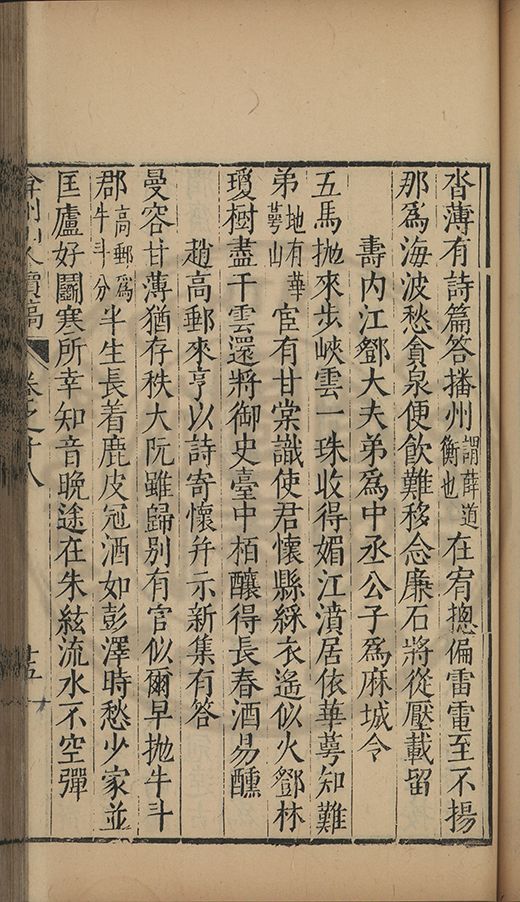 沓薄有詩篇答播州謂薛道衡也在宥摠偏雷電至不揚
那爲海波愁貪泉便飲難移念廉石將從壓載留
壽內江鄧大夫弟爲中丞公子爲麻城令
五馬抛來步峽雲一珠收得媚江濆居依華萼知難
弟地有華萼山宦有甘棠識使君懷縣綵衣遙似火鄧林
瓊樹盡干雲還將御史臺中栢釀得長春酒易醺
趙高郵來亨以詩寄懷并示新集有答
曼容甘薄猶存秩大阮雖歸別有官似爾早抛牛斗
郡高郵爲牛斗分半生長着鹿皮冠酒如彭澤時愁少家並
匡廬好鬬寒所幸知音晚途在朱絃流水不空彈
弇州山人續稿 卷之十八 十五